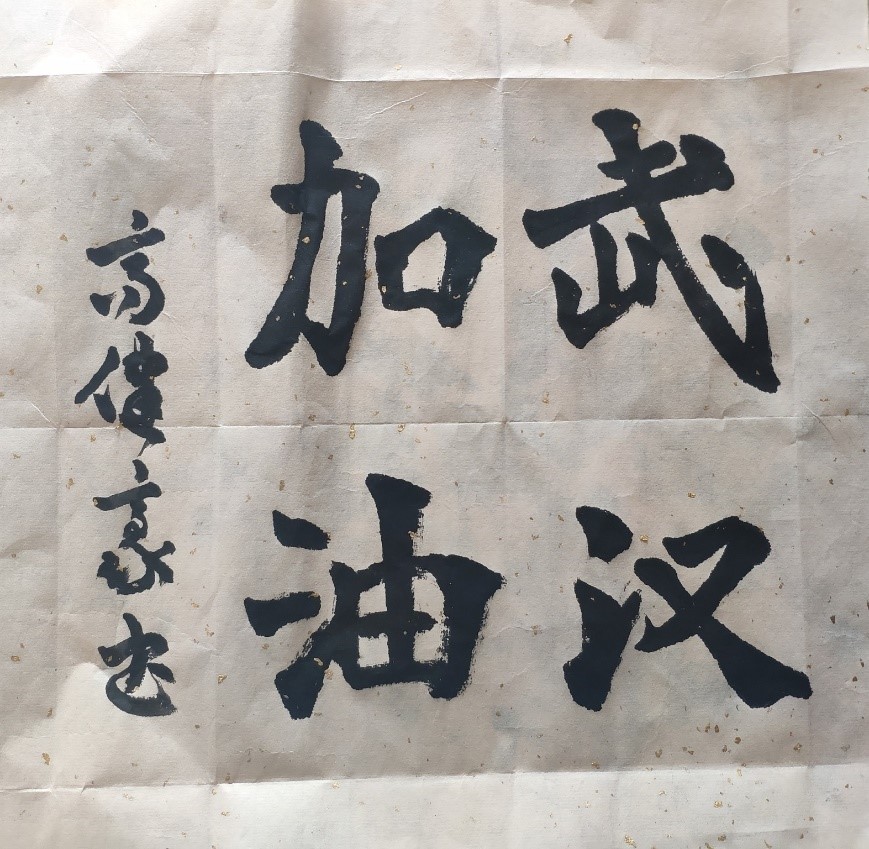 武汉
加油
高健豪书